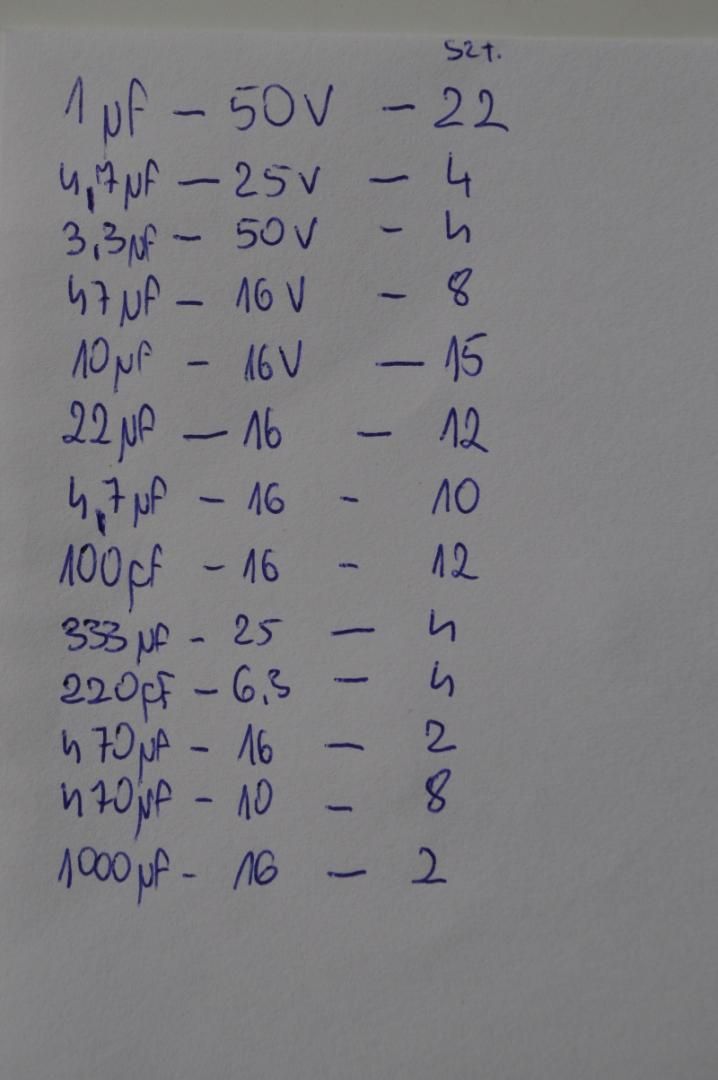 szt.
1 µF - 50V - 22
4,7µF - 25V - 4
3,3µF - 50V - 4
47µF - 16V - 8
10µF - 16V - 15
22µF - 16 - 12
4,7µF - 16 - 10
100µF - 16 - 12
333µF - 25 - 4
220µF - 6,3 - 4
470µF - 16 - 2
470µF - 10 - 8
1000µF - 16 - 2